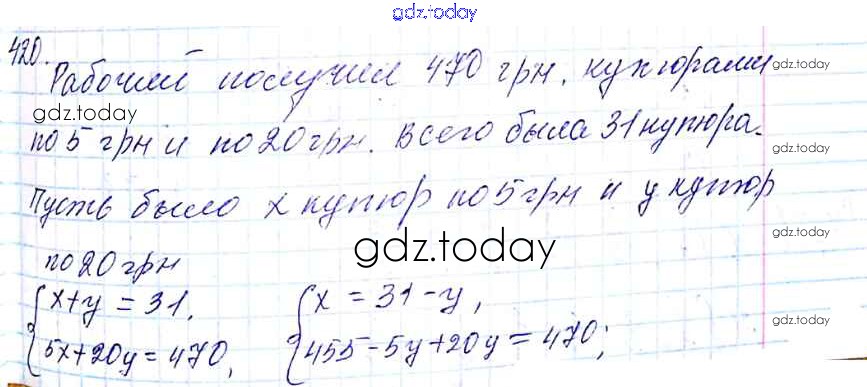 gdz.today
420.
Рабочий получил 470 грн. купюрами
gdz.today
gdz.today
по 5 грн и по 20 грн. Всего была 31 купюра.
gdz.today
Пусть было x купюр по 5 грн и y купюр
gdz.today
gdz.today
по 20 грн
gdz.today
x+y = 31, x = 31-y,
gdz.today
5x+20y = 470, 455-5y+20y = 470;